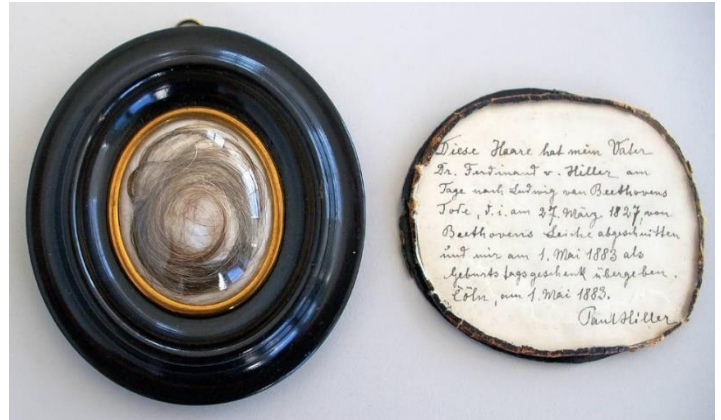 Diese Haare hat mein Vater
Dr. Ferdinand v. Hiller am
Tage nach Ludwig van Beethovens
Tode, d. i. am 27. März 1827, von
Beethovens Leiche abgeschnitten
und mir am 1. Mai 1883 als
Geburtstagsgeschenk übergeben.
Cöln, am 1. Mai 1883.
Paul Hiller